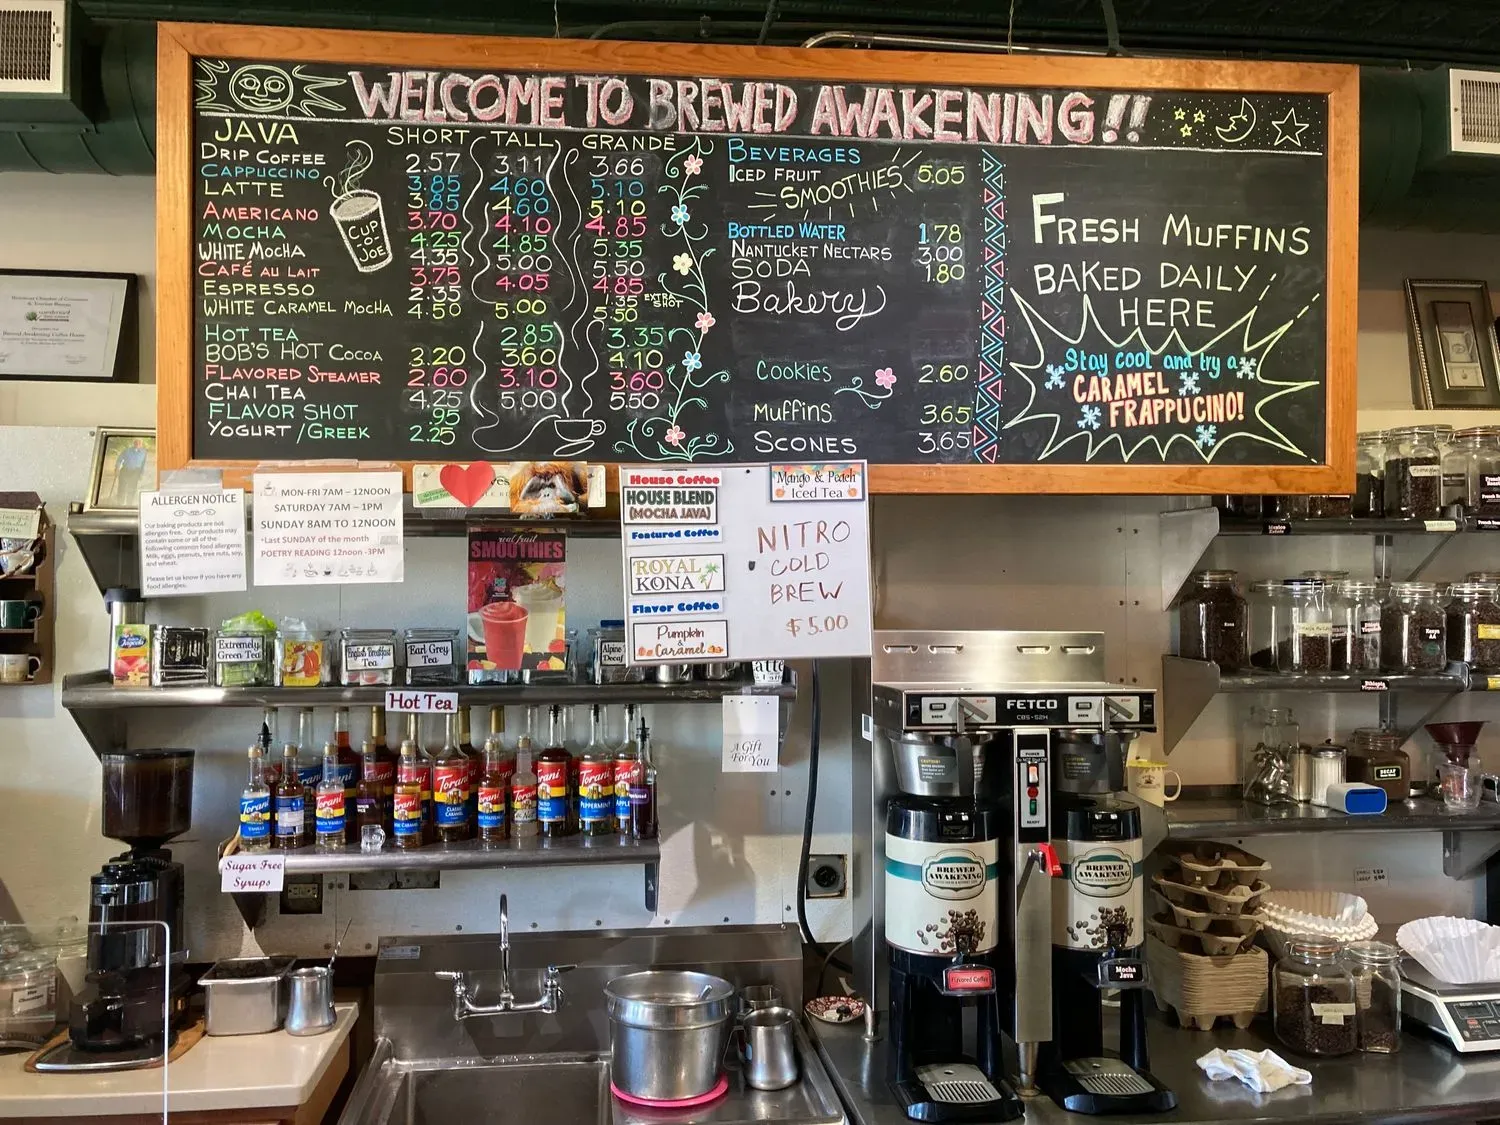 WELCOME TO BREWED AWAKENING!!
JAVA SHORT TALL GRANDE
DRIP COFFEE 2.57 3.11 3.66
CAPPUCCINO 3.85 4.60 5.10
LATTE 3.85 4.60 5.10
AMERICANO 3.70 4.10 4.85
MOCHA 4.25 4.85 5.35
WHITE MOCHA 4.35 5.00 5.50
CAFÉ AU LAIT 3.75 4.05 4.85
ESPRESSO 2.35 1.35 EXTRA SHOT
WHITE CARAMEL MOCHA 4.50 5.00 5.50
HOT TEA 2.85 3.35
BOB'S HOT COCOA 3.20 3.60 4.10
FLAVORED STEAMER 2.60 3.10 3.60
CHAI TEA 4.25 5.00 5.50
FLAVOR SHOT .95
YOGURT/GREEK 2.25
CUP
-O-
JOE
BEVERAGES
ICED FRUIT
SMOOTHIES 5.05
BOTTLED WATER 1.78
NANTUCKET NECTARS 3.00
SODA 1.80
Bakery
Cookies 2.60
Muffins 3.65
SCONES 3.65
FRESH MUFFINS
BAKED DAILY
HERE
Stay cool and try a
CARAMEL
FRAPPUCINO!
ALLERGEN NOTICE
Our baking products are not
allergen free. Our products may
contain some or all of the
following common food allergens:
Milk, eggs, peanuts, tree nuts, soy,
and wheat.
Please let us know if you have any
food allergies.
MON-FRI 7AM – 12NOON
SATURDAY 7AM – 1PM
SUNDAY 8AM TO 12NOON
*Last SUNDAY of the month
POETRY READING 12noon -3PM
real fruit
SMOOTHIES
House Coffee
HOUSE BLEND
(MOCHA JAVA)
Featured Coffee
ROYAL
KONA
Flavor Coffee
Pumpkin
&
Caramel
Mango & Peach
Iced Tea
NITRO
COLD
BREW
$5.00
Extremely
Green Tea
English Breakfast
Tea
Earl Grey
Tea
Alpine
Decaf
Hot Tea
A Gift
For You
Torani
VANILLA
Torani
Torani
Torani
Torani
CLASSIC
CARAMEL
Torani
Torani
Torani
PEPPERMINT
Torani
APPLE
Sugar Free
Syrups
FETCO
CBS-52H
BREWED
AWAKENING
BREWED
AWAKENING
Flavored Coffee
Mocha
Java
DECAF